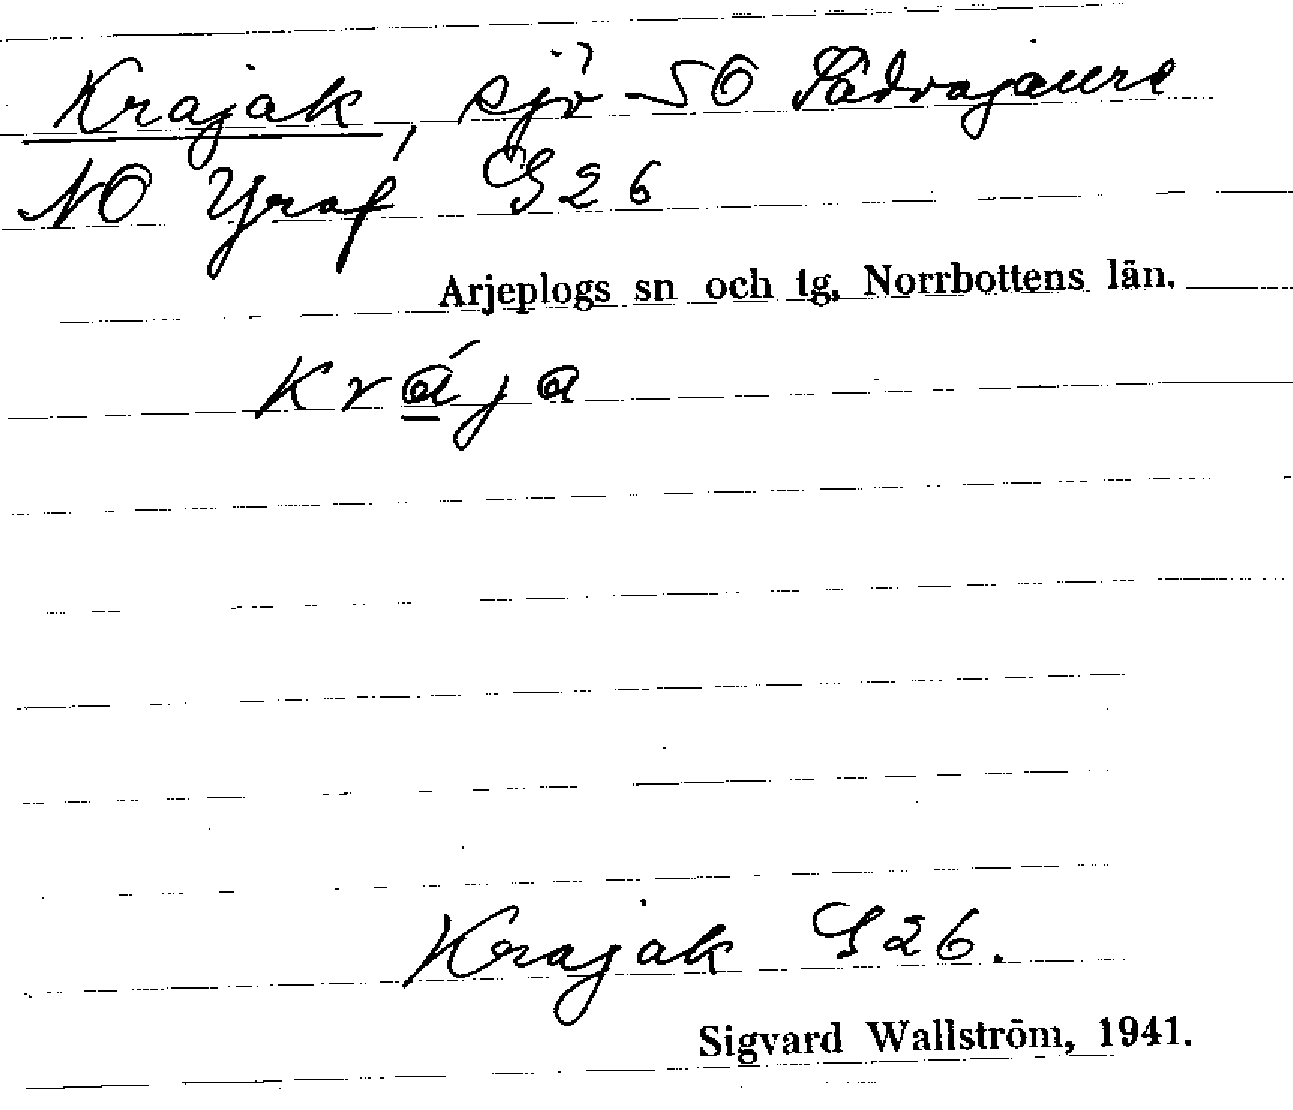 Krajak, sjö SO Sädvajaure
NO Yraf G26
Arjeplogs sn och tg, Norrbottens län.
krája
Krajak G26.
Sigvard Wallström, 1941.